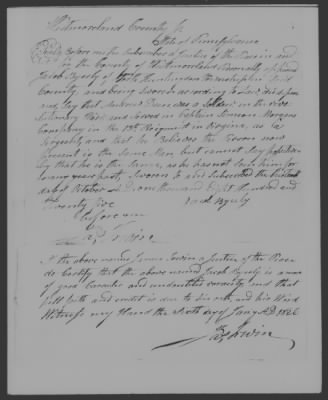 Westmoreland County Ss
State of Pennsylvania
Before me the Subscriber a Justice of the Peace in and
for the County of Westmoreland Personally appeared
Jacob Byerly of North Huntingdon Township Said
County, and being Sworn according to Law, did depose
and Say that Andrew Dunn was a Soldier in the revo
lutionary War and Served in Captain Simon Morgans
Company in the 13th Regiment in Virginia, as
Sergeant, and that he Believes the Person now
Present is the Same Man, but cannot Say positive
ly that he is the Same, as he has not Seen him for
many years past, Sworn to and Subscribed the
day of October AD one thousand Eight Hundred and
Twenty five
Jacob Byerly
before me
Jas Irwin
I the above named James Irwin a Justice of the Peace
do Certify that the above named Jacob Byerly is a man
of good Character and undoubted veracity and that
full faith and credit is due to his oath, and his Word
Witness my Hand the Sixth day of Jany AD 1826
Jas Irwin